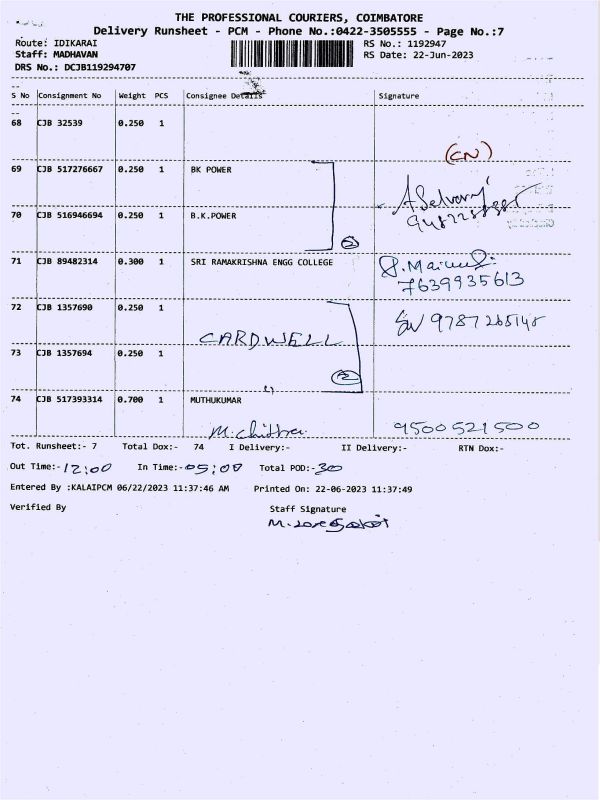 THE PROFESSIONAL COURIERS, COIMBATORE
Delivery Runsheet - PCM - Phone No.:0422-3505555 - Page No.:7
Route: IDIKARAI RS No.: 1192947
Staff: MADHAVAN RS Date: 22-Jun-2023
DRS No.: DCJB119294707
S No Consignment No Weight PCS Consignee Details Signature
68 CJB 32539 0.250 1
(CN)
69 CJB 517276667 0.250 1 BK POWER
A Selvaraj
70 CJB 516946694 0.250 1 B.K.POWER
2
71 CJB 89482314 0.300 1 SRI RAMAKRISHNA ENGG COLLEGE
7639935613
72 CJB 1357690 0.250 1
9787265148
CARDWELL
73 CJB 1357694 0.250 1
2
74 CJB 517393314 0.700 1 MUTHUKUMAR
M. Chithra 9500521500
Tot. Runsheet:- 7 Total Dox:- 74 I Delivery:- II Delivery:- RTN Dox:-
Out Time:- 12:00 In Time:- 05:00 Total POD:- 30
Entered By :KALAIPCM 06/22/2023 11:37:46 AM Printed On: 22-06-2023 11:37:49
Verified By Staff Signature